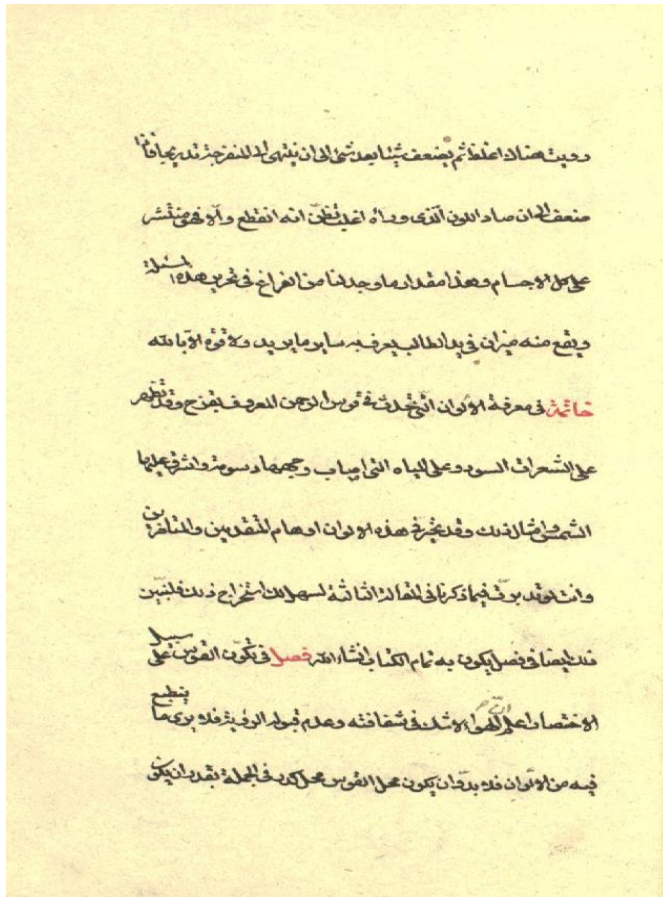 رويت هناك اغلظ ثم يضعف شيئا بعد شئ الى ان ينتهى الى المنفرجة تدريجا فاذا
ضعف الى ان صار اللون الذى وراه اغلب تظن انه انقطع والا فهى منتشر
على كل الاجسام وهذا مقدار ما وجدنا من الفراغ فى تحرير هذه المسئلة
ويقع منه ميزان فى يد الطالب يعرف به ساير ما يريد ولا قوة الا بالله
خاتمة فى معرفة الالوان التى تحدث فى قوس الرحمن المعروف بقزح وقد تظهر
على الشعرات السود وعلى المياه التى اصاب وجهها دسومة واشرق عليها
الشمس وامثال ذلك وقد تحير فى هذه الالوان اوهام المتقدمين والمتاخرين
وانت لو تدبرت فيما ذكرنا فى المقالة الثالثة لسهل لك استخراج ذلك فلنبين
ذلك ايضا فى فصل يكون به تمام الكتاب انشاء الله فصل فى تكون القوس على سبيل
الاختصار اعلم ان الهواء لا شك فى شفافته وعدم قبوله الرؤية فلا يرى ما ينطبع
فيه من الالوان فلا بد وان يكون محل القوس محل كدر فى الجملة بقدر ان يكون